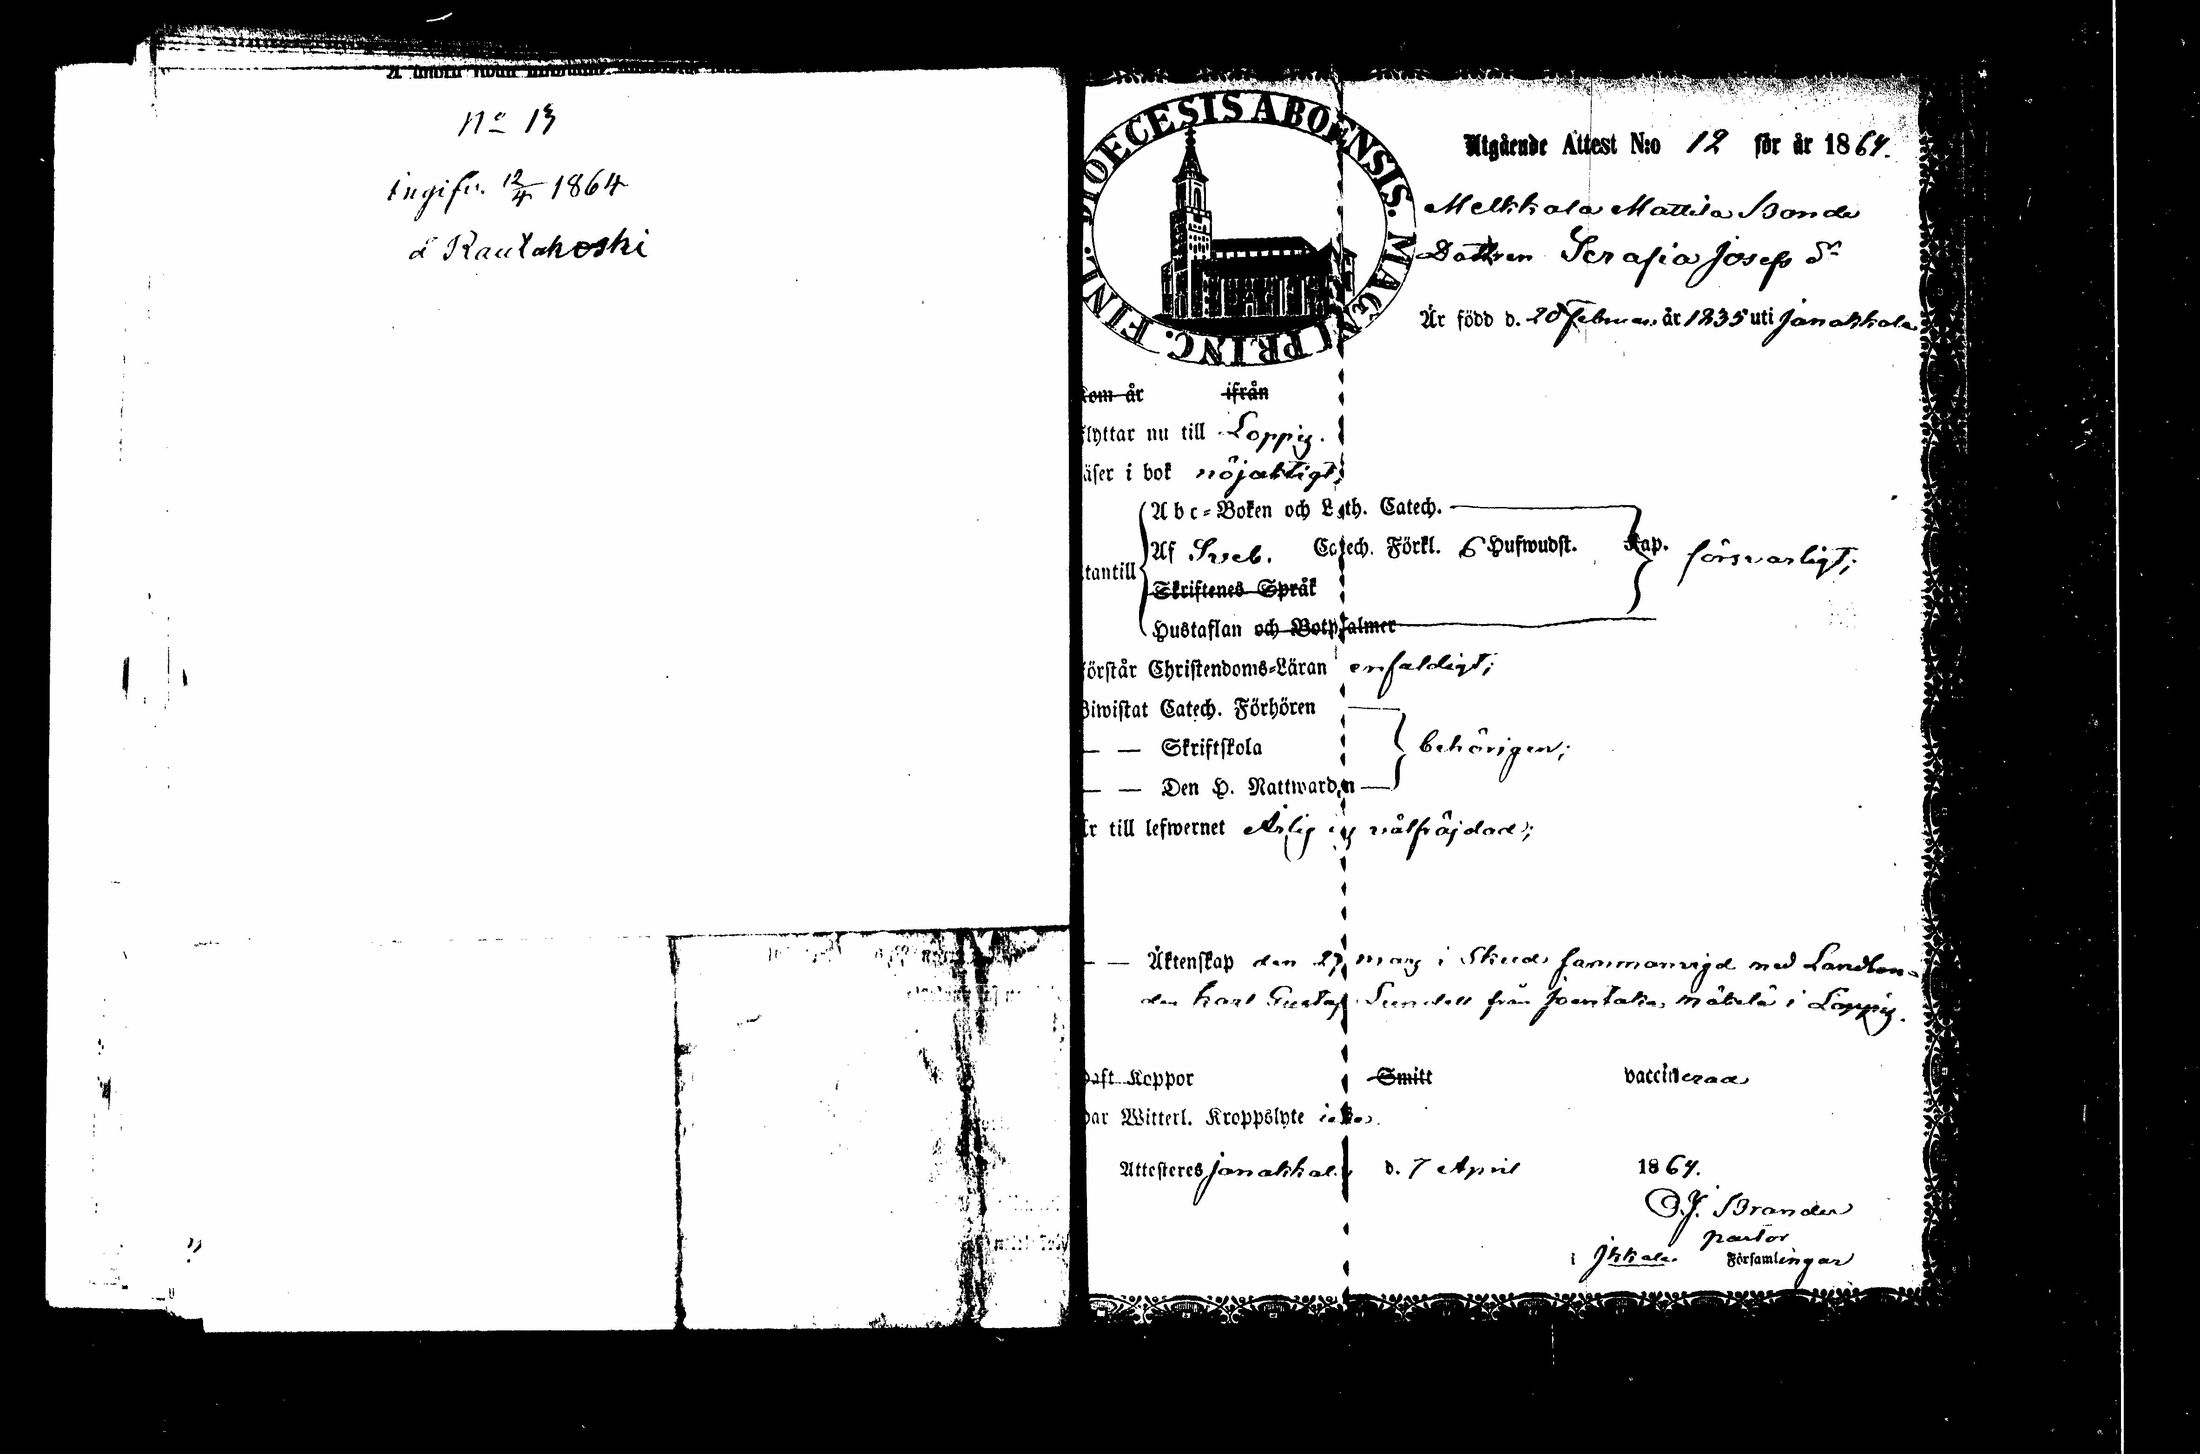 No 13
ingifv. 12/4 1864
å Rautakoski
DIOECESIS ABOENSIS. MAGNI PRINC. FINL.
Utgående Attest N:o 12 för år 1864.
Melkkola Mattila Bonde
Dottren Serafia Josefs Dr
Är född d. 20 Februari år 1835 uti Janakkala
Kom år ifrån
flyttar nu till Loppis.
läser i bok nöjaktigt;
Abc-Boken och Luth. Catech.
utantill Af Sveb. Catech. Förkl. 6 Hufwudst. Kap. försvarligt;
Skriftenes Språk
Hustaflan och Botpsalmer
förstår Christendoms-Läran enfaldigt;
Biwistat Catech. Förhören
— — Skriftskola behörigen;
— — Den H. Nattwarden
Är till lefwernet Ärlig och välfräjdad;
— — Äktenskap den 27 mars i Skuds sammanvigd med Landbon-
den Karl Gustaf Lundell från Joentaka Mäkelä i Loppis.
Haft Koppor Smitt vaccinerad
Har Witterl. Kroppslyte icke.
Attesteres Janakkala d. 7 April 1864.
O. J. Brander
pastor
i Jkkala Församlingar